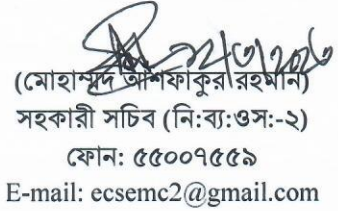 ১২/৩/২০২৩
(মোহাম্মদ আশফাকুর রহমান)
সহকারী সচিব (নি:ব্য:ওস:-২)
ফোন: ৫৫০০৭৫৫৯
E-mail: ecsemc2@gmail.com